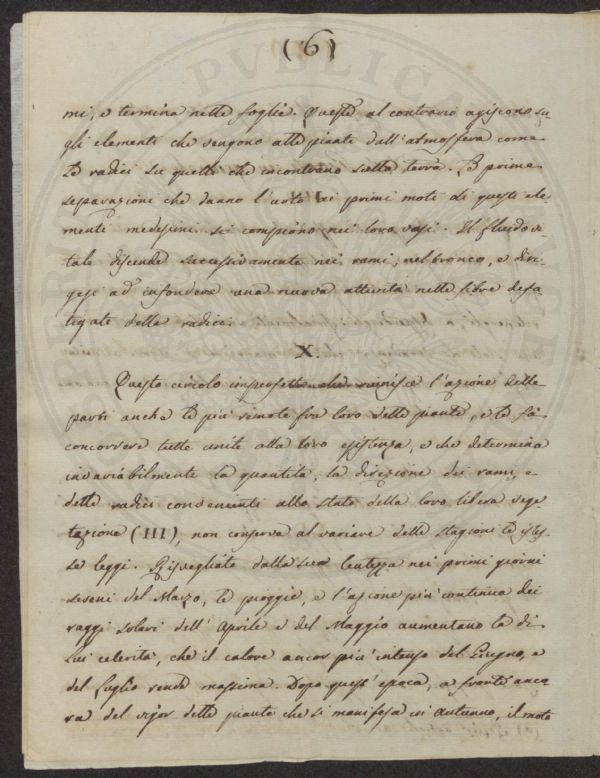 (6)
mi, e termina nelle foglie. Queste al contrario agiscono su
gli elementi che vengono alle piante dall'atmosfera come
le radici su quelli che incontrano sulla terra. Le prime
separazioni che danno l'urto ai primi moti di questi ele-
menti medesimi si compiono nei loro vasi. Il fluido vi-
tale discende successivamente nei rami, nel tronco, e diri-
gesi ad infondere una nuova attività nelle fibre defa-
tigate delle radici.
X.
Questo circolo imperfetto che riunisce l'azione delle
parti anche le più remote fra loro delle piante, e le fa
concorrere tutte unite alla loro esistenza, e che determina
invariabilmente la quantità, la direzione dei rami, e
delle radici convenienti allo stato della loro libera vege-
tazione (III), non conserva al variare delle stagioni le istes-
se leggi. Risvegliato dalla sua lentezza nei primi giorni
sereni del Marzo, le pioggie, e l'azione più continua dei
raggi solari dell'Aprile e del Maggio aumentano la di
lui celerità, che il calore ancor più intenso del Giugno, e
del Luglio rende massima. Dopo quest'epoca, a fronte anco
ra del vigor delle piante che si manifesta in Autunno, il moto
PVBLICA